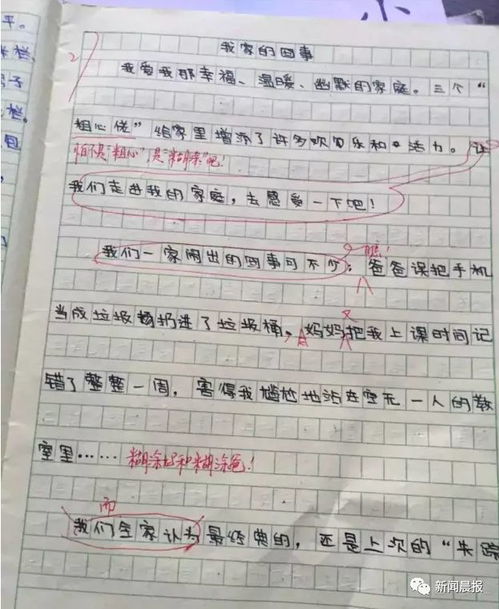 平。
栏
子
栏。
包
我家的囧事
2
我爱我那幸福、温暖、幽默的家庭。三个“
粗心佬”给家里增添了许多欢乐和活力。让
怕不是“粗心”是“糊涂”吧！
我们走进我的家庭，去感受一下吧！
我们一家闹出的囧事可不少：爸爸误把手机
瞧！
当成垃圾扔进了垃圾桶，妈妈把我上课时间记
又
错了整整一周，害得我尴尬地站在空无一人的教
室里……糊涂妈和糊涂爸！
而
我们全家认为最经典的，还是上次的“失踪
新闻晨报